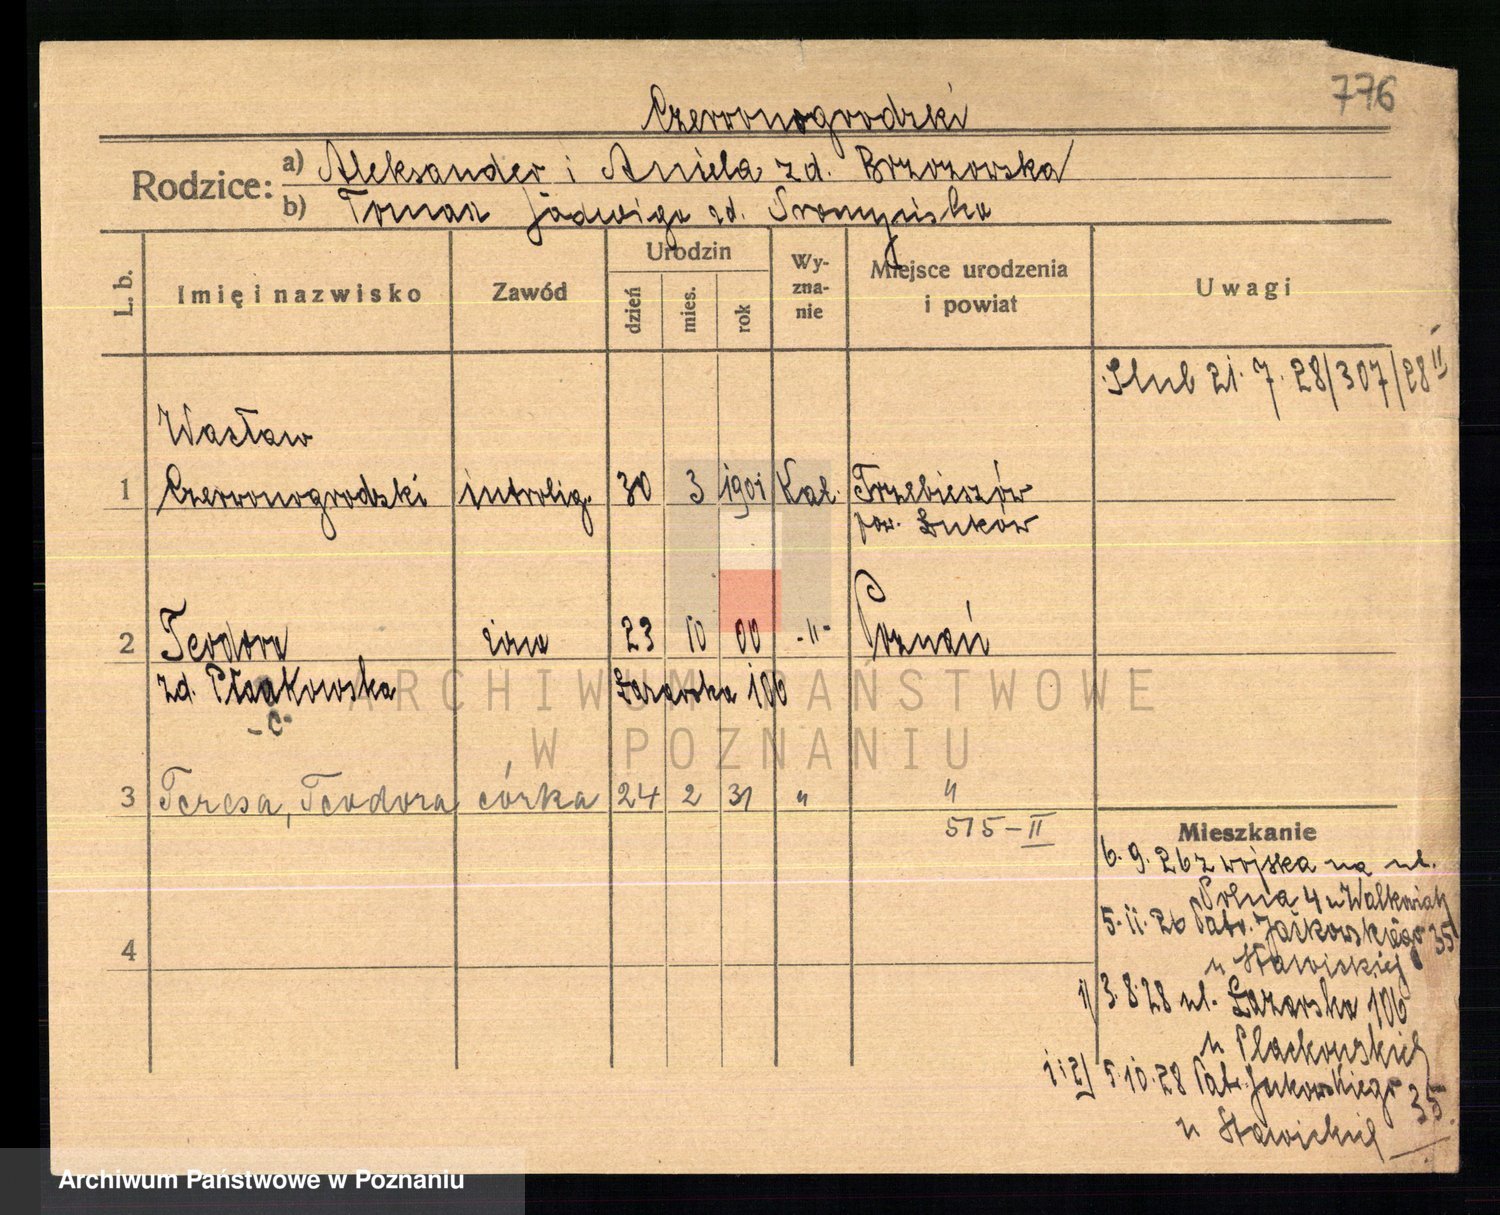 776
Czerwonogrodzki
Rodzice: a) Aleksander i Aniela zd. Brzozowska
b) Tomasz Jadwiga zd.
L. b. Imię i nazwisko Zawód Urodzin dzień mies. rok Wy-zna-nie Miejsce urodzenia i powiat Uwagi
Ślub 21. 7. 28/307/28 II
Wacław
1 Czerwonogrodzki introlig. 30 3 1901 Kat. Trzebieszów
pow. Łuków
2 Teodora żona 23 10 00 -"- Poznań
zd. Płaakowska Łazarska 106
-c-
3 Teresa, Teodora córka 24 2 31 " "
515-II
Mieszkanie
6. 9. 26 z wojska na ul.
Polna 4 u
5. 11. 26 Patr. Jackowskiego 35
4
u Stawiskiej
1/ 3. 8. 28 ul. Łazarska 106
u Plackowskiej
1 i 2/ 5. 10. 28 Patr. Jackowskiego 35
u Stawickiej
ARCHIWUM PAŃSTWOWE
W POZNANIU
Archiwum Państwowe w Poznaniu